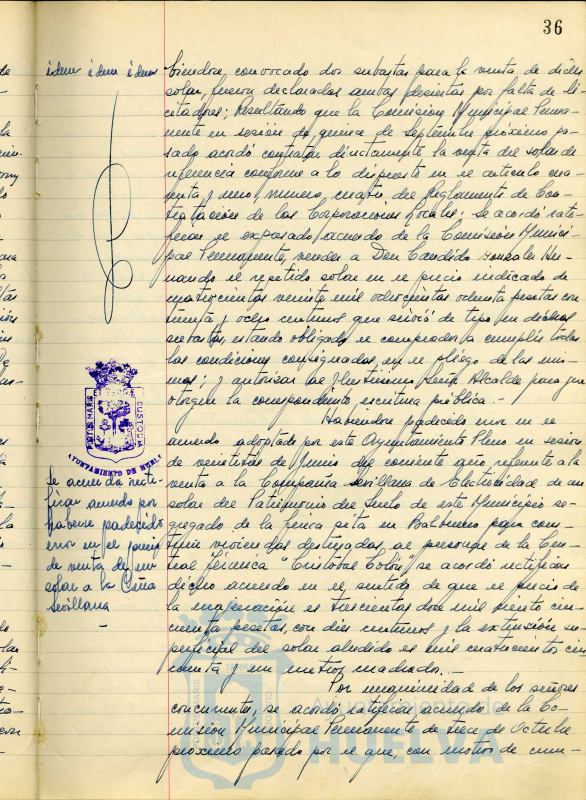 36
idem idem idem
biendose, convocado dos subastas para la venta de dicho
solar, fueron declaradas ambas desiertas por falta de li-
citadores; Resultando que la Comisión Municipal Perma-
nente en sesión de quince de Septiembre próximo pa-
sado acordó contratar directamente la venta del solar de
referencia conforme a lo dispuesto en el artículo cua-
renta y uno, número cuatro del Reglamento de Con-
tratación de las Corporaciones Locales; se acordó rati-
ficar el expresado acuerdo de la Comisión Munici-
pal Permanente, vender a Don Candido Gonzalez Her-
nando el repetido solar en el precio indicado de
cuatrocientas veinte mil ochocientas ochenta pesetas con
y ocho centimos que sirvió de tipo en dichas
subastas, estando obligado el comprador a cumplir todas
las condiciones consignadas en el pliego de las mis-
mas; y autorizar al Ilustrísimo Señor Alcalde para que
otorgue la correspondiente escritura pública.-
Habiendose padecido error en el
acuerdo adoptado por este Ayuntamiento Pleno en sesión
de veintitres de Junio del corriente año, referente a la
venta a la Compañia Sevillana de Electricidad de un
solar del Patrimonio del Suelo de este Municipio se-
gregado de la finca sita en Balbueno para cons-
truir viviendas destinadas al personal de la Cen-
tral Térmica "Cristobal Colón", se acordó rectificar
dicho acuerdo en el sentido de que el precio de
la enajenación es trescientas doce mil ciento cin-
cuenta pesetas, con diez centimos y la extensión su-
perficial del solar aludido es mil cuatrocientos cin-
cuenta y un metros cuadrados.-
Por unanimidad de los señores
concurrentes, se acordó ratificar acuerdo de la Co-
misión Municipal Permanente de trece de Octubre
próximo pasado por el que, con motivo de cum-
PORTUS MARIS
CUSTODIA
AYUNTAMIENTO DE HUELVA
Se acuerda recti-
ficar acuerdo por
haberse padecido
error en el precio
de venta de un
solar a la Cñia
Sevillana
-
Ayuntamiento de
HUELVA